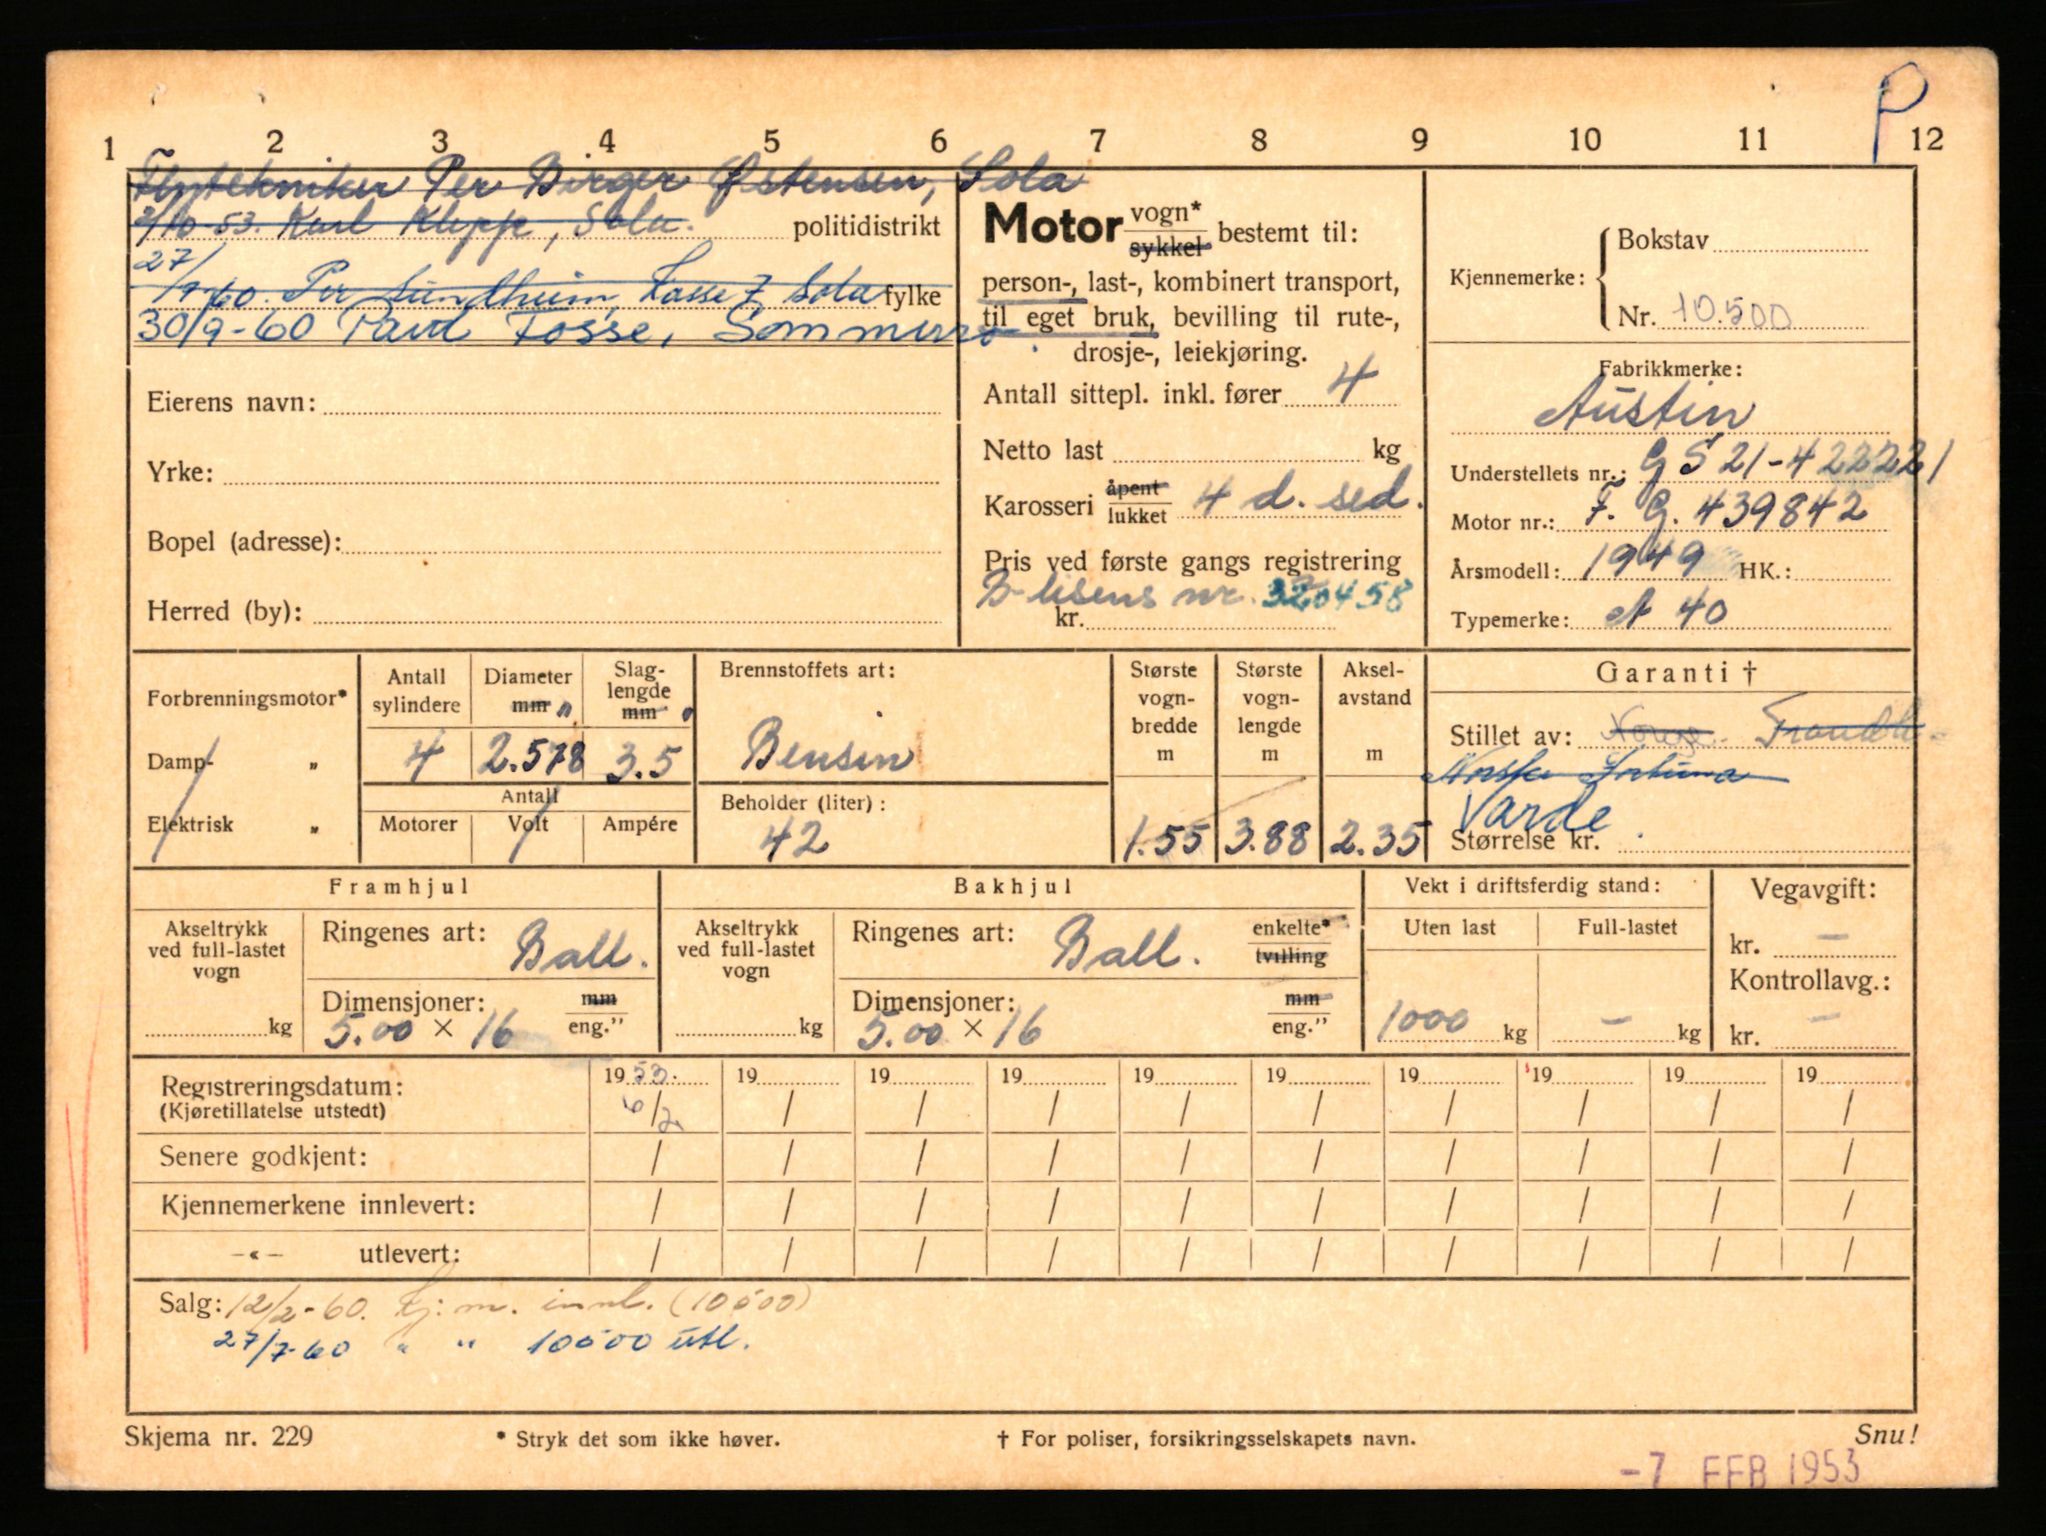 P
1 2 3 4 5 6 7 8 9 10 11 12
Flytekniker Per Birger Østensen, Sola
3/10-53. Karl Kleppe, Sola. politidistrikt
27/
/7-60. Per Sundheim, Tasse 7, Sola fylke
30/9-60 Paul Fosse, Sømmevå
Eierens navn:
Yrke:
Bopel (adresse):
Herred (by):
Motor vogn* sykkel bestemt til:
person-, last-, kombinert transport,
til eget bruk, bevilling til rute-,
drosje-, leiekjøring.
Antall sittepl. inkl. fører 4
Netto last kg
Karosseri åpent lukket 4 d. sed.
Pris ved første gangs registrering
B-lisens nr. 320458
kr.
Kjennemerke: Bokstav
Nr. 10.500
Fabrikkmerke:
Austin
Understellets nr.: G S 21-422221
Motor nr.: F. G. 439842
Årsmodell: 1949 HK.:
Typemerke: A 40
Forbrenningsmotor*
Damp- „
Elektrisk „
Antall sylindere
4
Diameter mm "
2.578
Slaglengde mm "
3.5
Antall
Motorer Volt Ampére
Brennstoffets art:
Bensin
Beholder (liter):
42
Største vognbredde m
1.55
Største vognlengde m
3.88
Akselavstand m
2.35
Garanti †
Stillet av: Norge.
Norske Fortuna
Varde
Størrelse kr.
Framhjul
Akseltrykk ved full-lastet vogn
kg
Ringenes art: Ball.
Dimensjoner: mm
5.00 × 16 eng."
Bakhjul
Akseltrykk ved full-lastet vogn
kg
Ringenes art: Ball. enkelte* tvilling
Dimensjoner: mm
5.00 × 16 eng."
Vekt i driftsferdig stand:
Uten last Full-lastet
1000 kg – kg
Vegavgift:
kr. –
Kontrollavg.:
kr. –
Registreringsdatum: 19 53. 19 19 19 19 19 19 19 19 19
(Kjøretillatelse utstedt) 6/2 / / / / / / / / /
Senere godkjent: / / / / / / / / / /
Kjennemerkene innlevert: / / / / / / / / / /
—«— utlevert: / / / / / / / / / /
Salg: 12/2-60. Kj.m. innl. (10500)
27/7-60 " " 10500 utl.
Skjema nr. 229 * Stryk det som ikke høver. † For poliser, forsikringsselskapets navn. Snu!
-7 FEB 1953